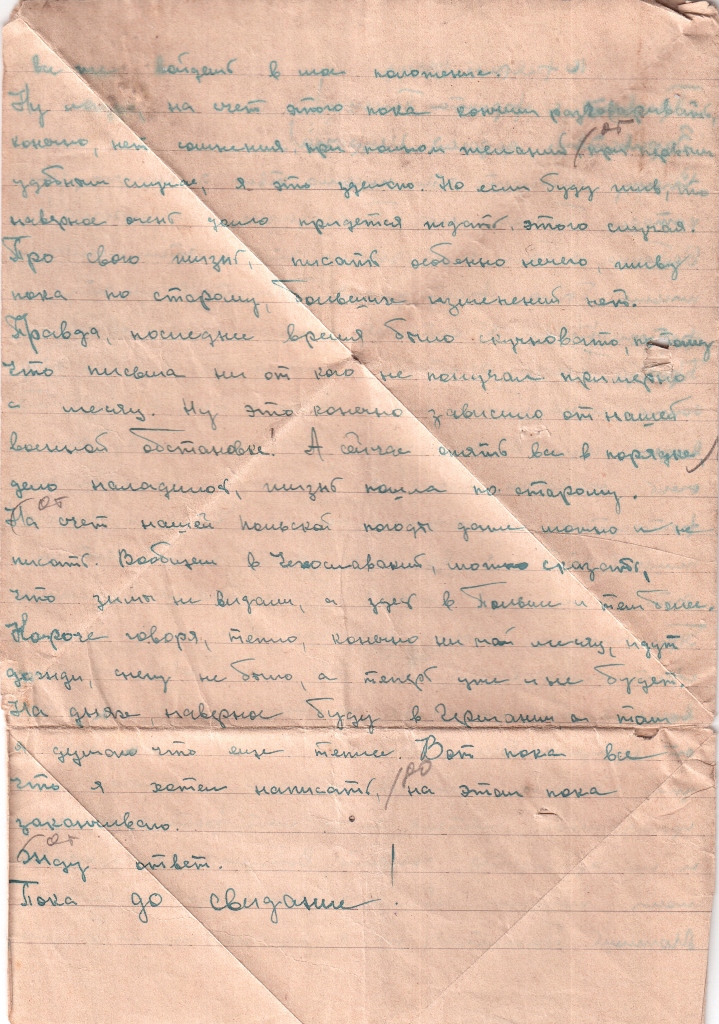 вы войдете в мое положение.
Ну на счет этого пока кончим разговаривать,
конечно, нет сомнения при полном желании при первом
удобном случае, я это зделаю. Но если буду жив, то
наверное очень долго придется ждать этого случая.
Про свою жизнь, писать особенно нечего, живу
пока по старому, больших изменений нет.
Правда, последнее время было скучновато, потому
что письма ни от кого не получал примерно
с месяц. Ну это конечно зависило от нашей
военной обстановке. А сейчас опять все в порядке
дело наладилос, жизнь пошла по старому.
На счет нашей польской погоды даже можно и не
писать. Вообщем в Чехославакии, можно сказать,
что зимы не видали, а здес в Польше и тем более.
Короче говоря, тепло, конечно ни май месяц, идут
дожди, снегу не было, а теперь уже и не будет.
На днях, наверное буду в Германии, а там
я думаю что еще теплее. Вот пока все
что я хотел написать, на этом пока
заканчиваю.
Жду ответ.
Пока до свидание.